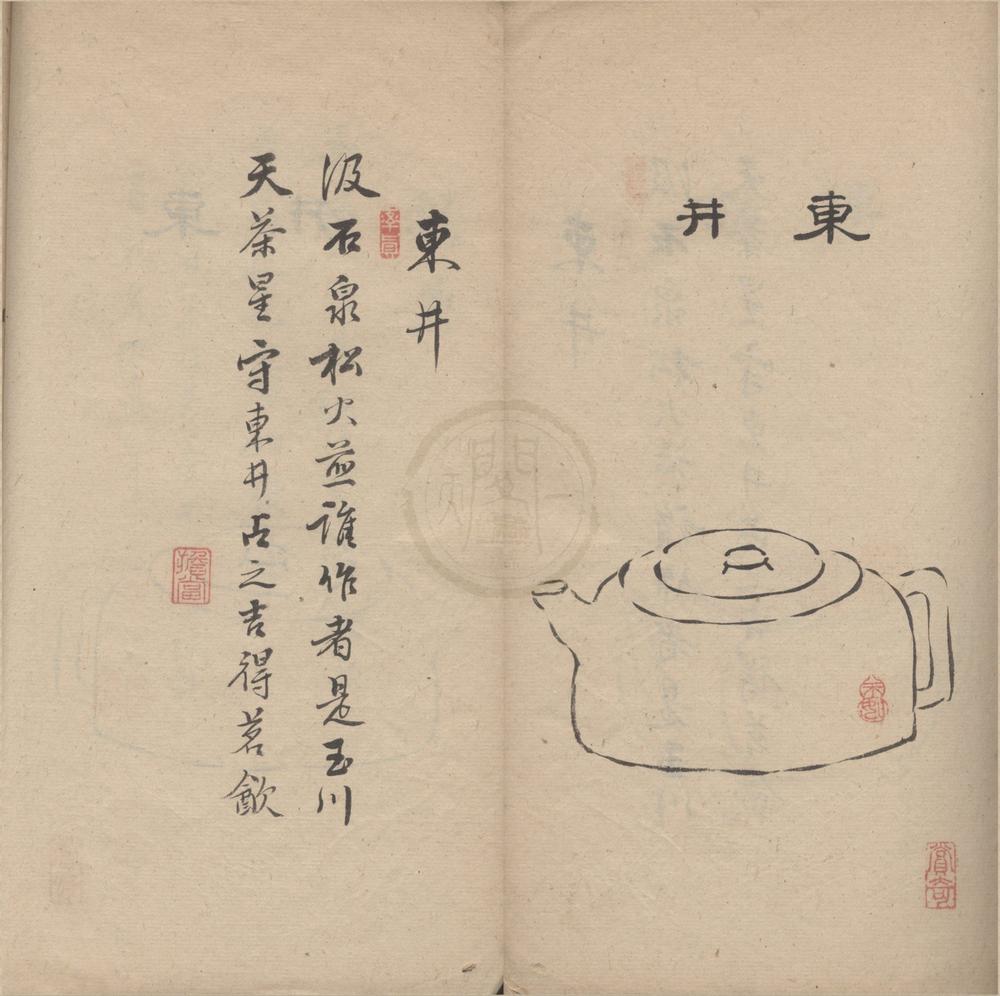 東井
東井
汲石泉松火煎誰作者是玉川
天茶星守東井占之吉得茗飲
賞奇